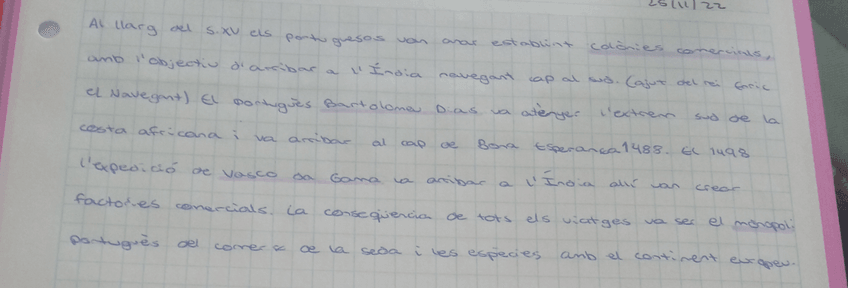 25/11/22
Al llarg del s.XV els portuguesos van anar establint colònies comercials,
amb l'objectiu d'arribar a l'Índia navegant cap al sud. (ajut del rei Enric
el Navegant) El portuguès Bartolomeu Dias va atènyer l'extrem sud de la
costa africana i va arribar al cap de Bona Esperança 1488. El 1498
l'expedició de Vasco da Gama va arribar a l'Índia allí van crear
factories comercials. La conseqüència de tots els viatges va ser el monopoli
portuguès del comerç de la seda i les espècies amb el continent europeu.